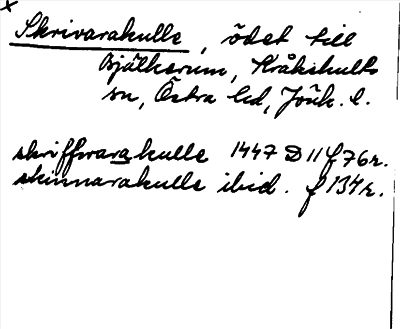 x
Skrivarakulle, ödet till
Bjälkerum, Kråkshults
sn, Östra hd, Jönk. l.
skriffwarakulle 1447 D 11 f 76r.
skinnarakulle ibid. f 134r.